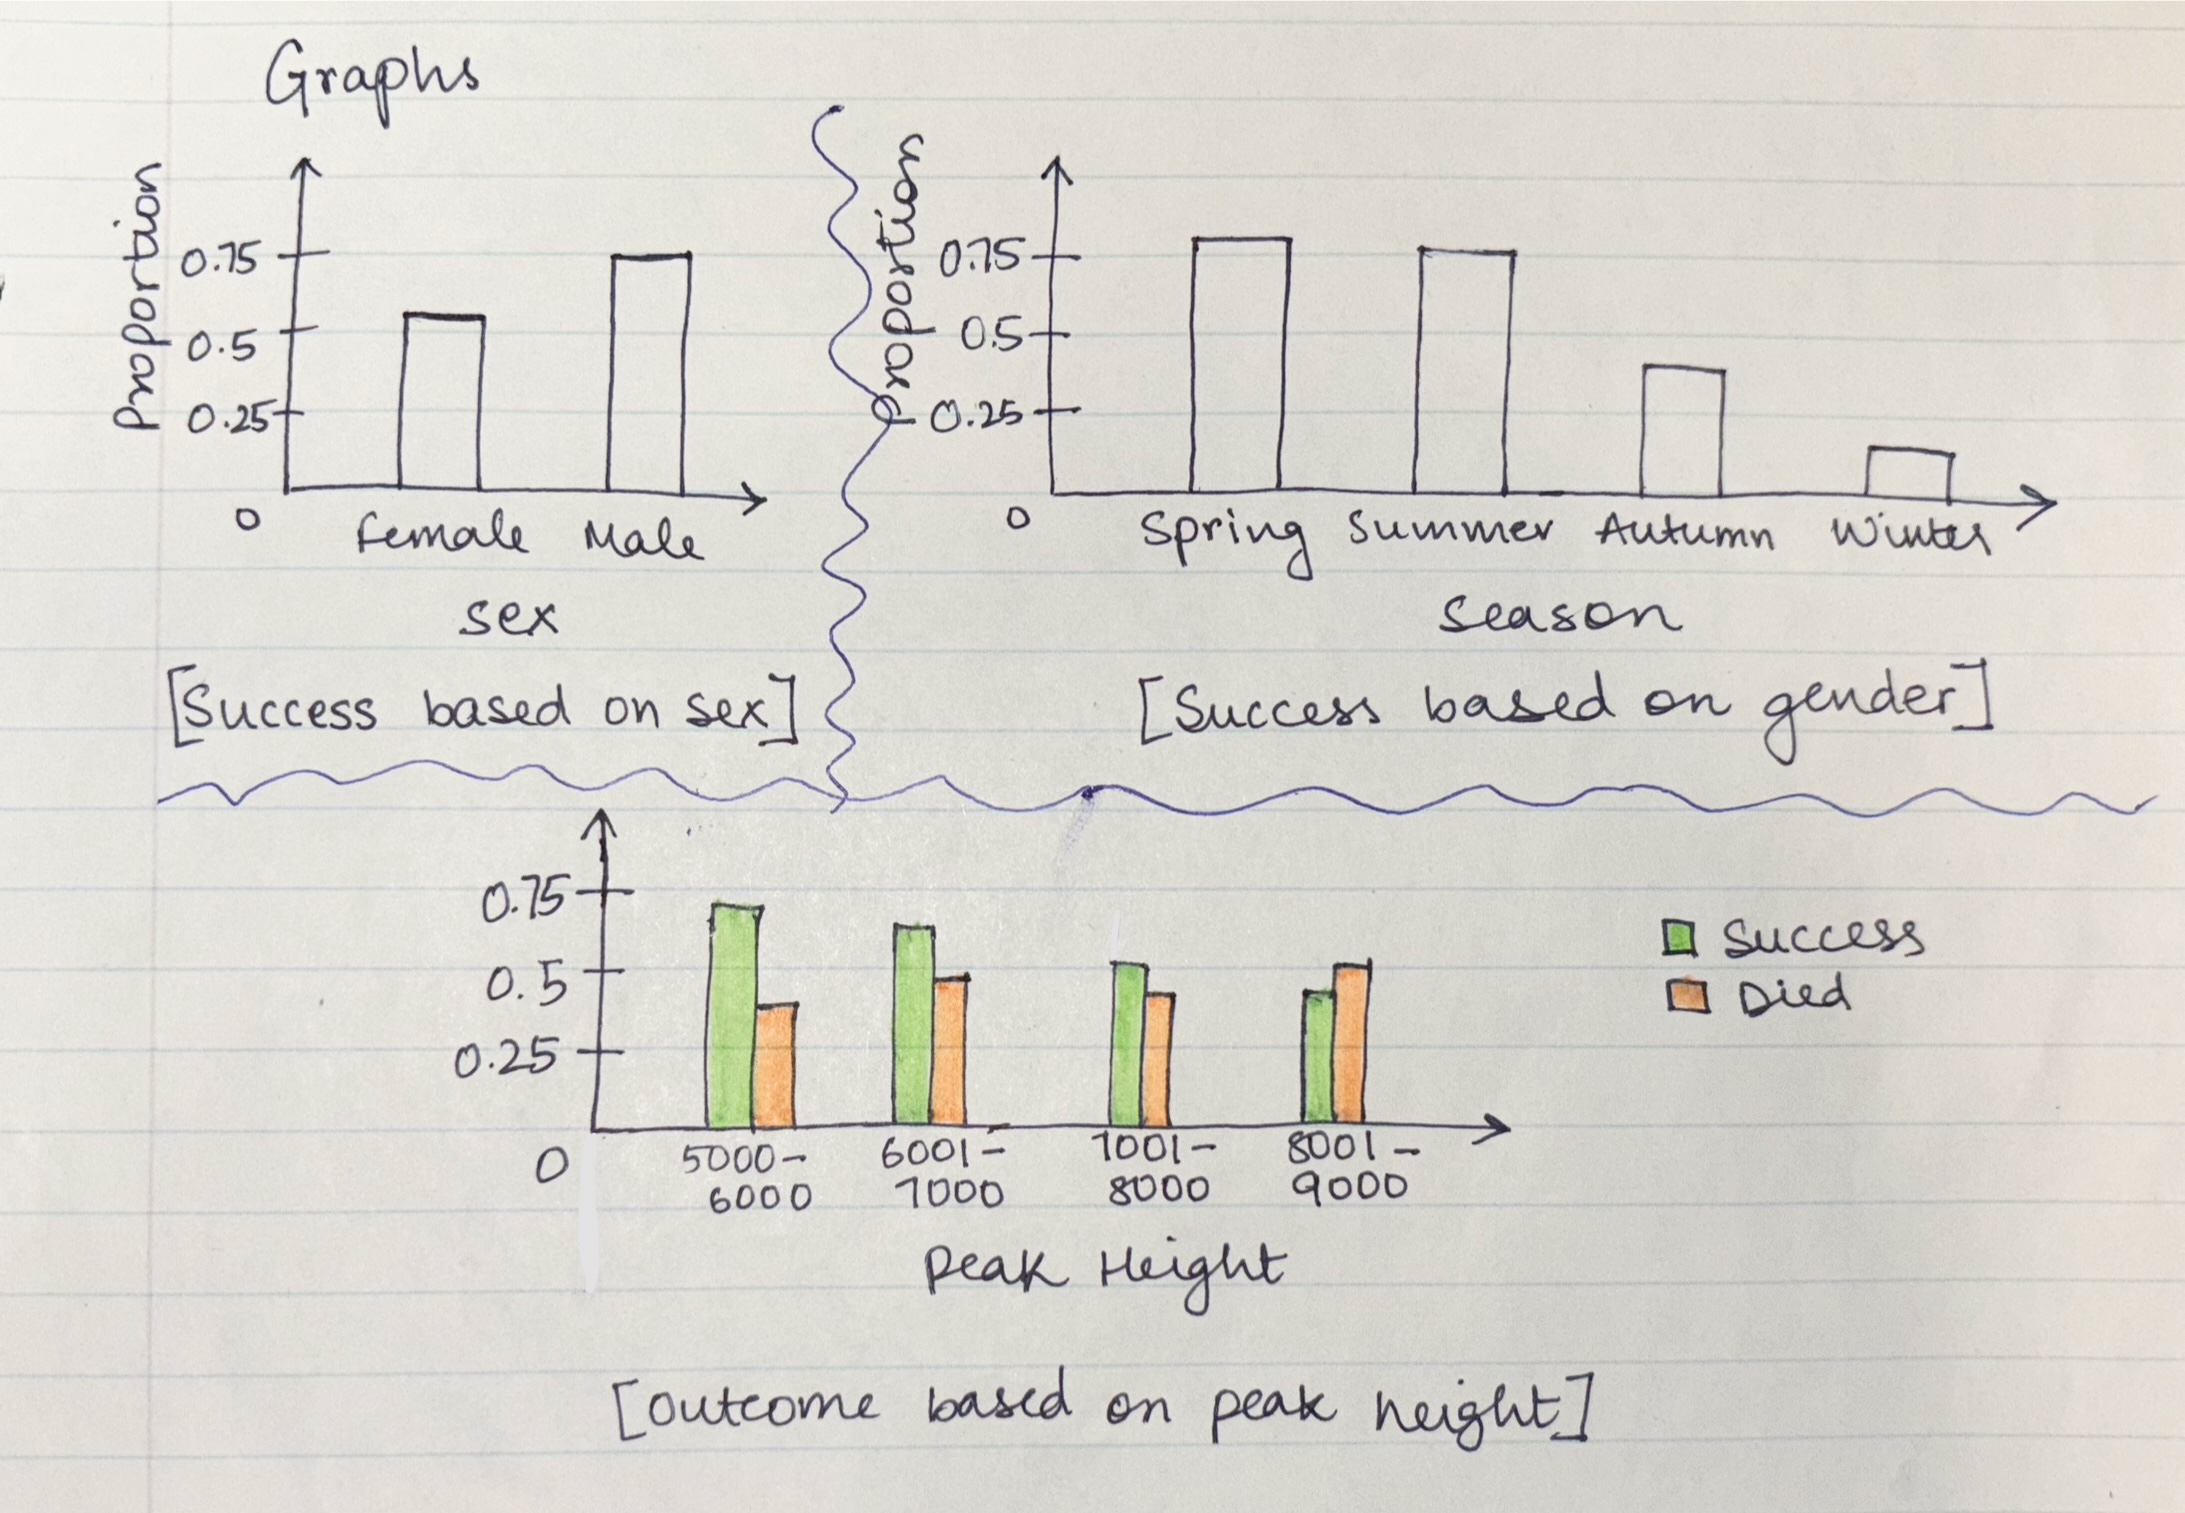 Graphs
Proportion
0.75
0.5
0.25
0
Female Male
Sex
[Success based on sex]
Proportion
0.75
0.5
0.25
0
Spring Summer Autumn Winter
Season
[Success based on gender]
0.75
0.5
0.25
0
5000- 6001- 7001- 8001-
6000 7000 8000 9000
Peak Height
Success
Died
[Outcome based on peak height]